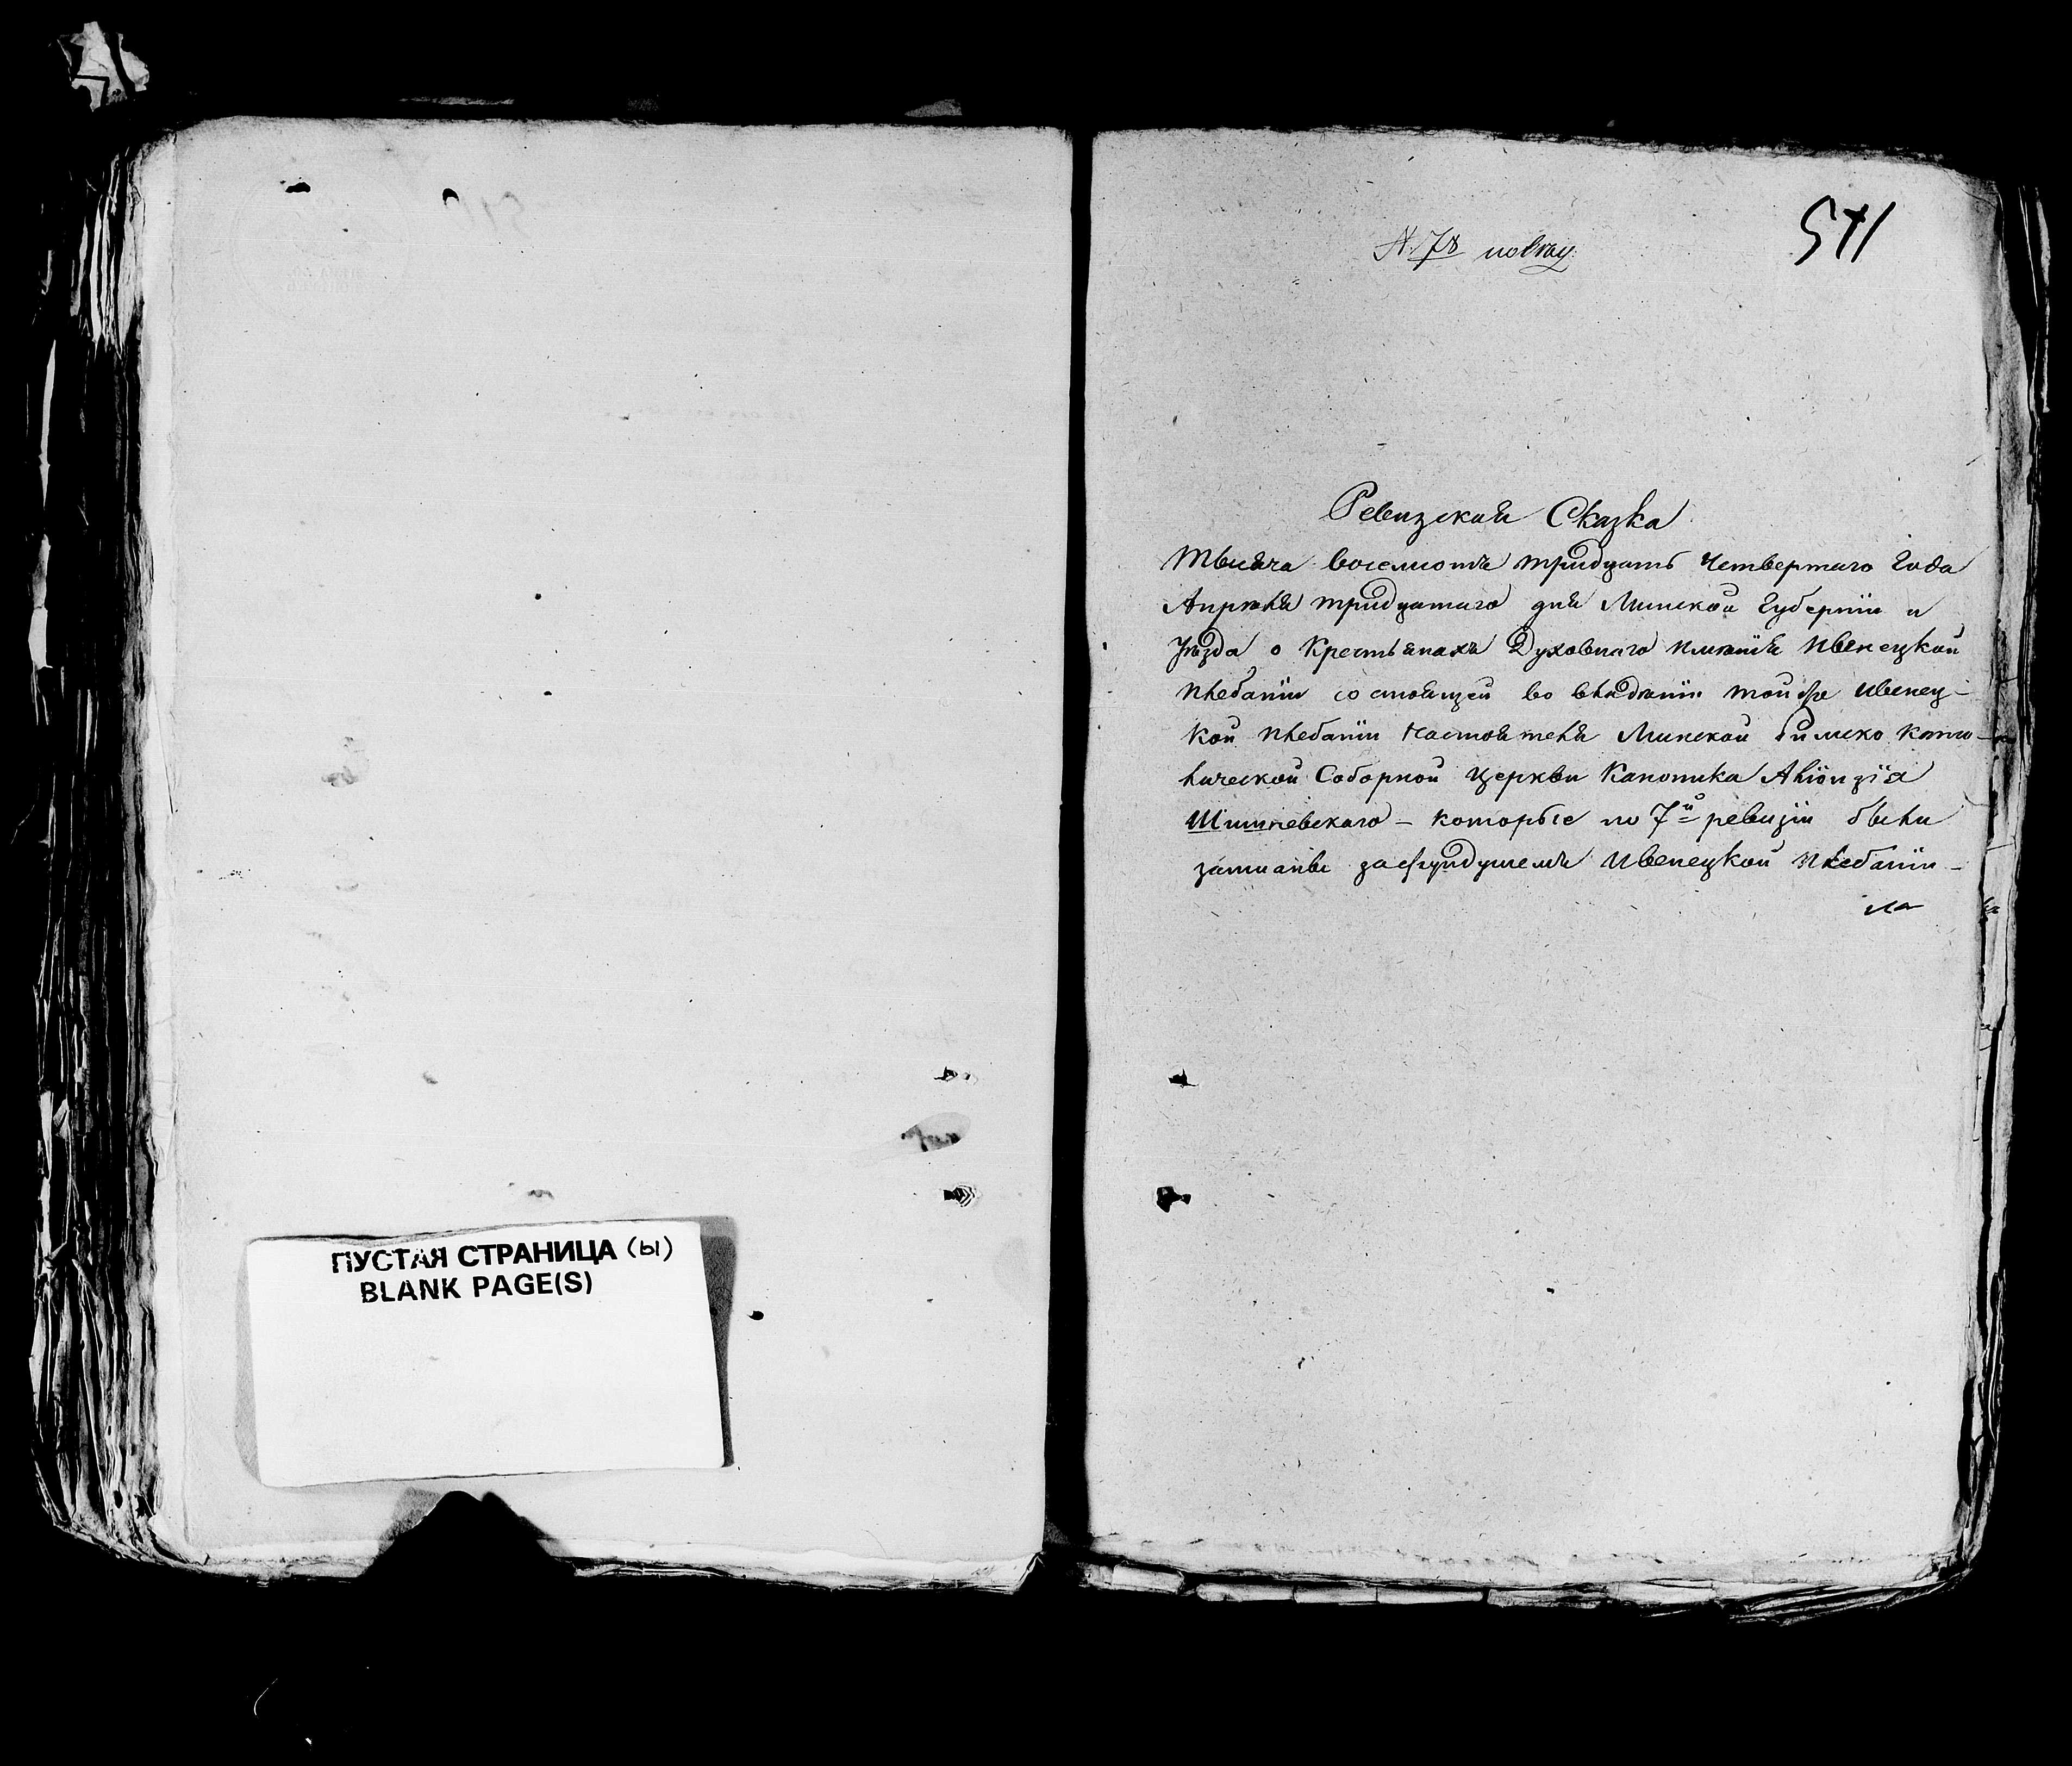 ПУСТАЯ СТРАНИЦА (ы)
BLANK PAGE(S)
541
N. 78
Ревизская Сказка
Тысяча восемсотъ тридцать Четвертаго Года
Апрѣля тридцатаго дня Минской Губернїи и
Уѣзда о Крестьянахъ Духовнаго имѣнїя Ивенецкой
плебанїи состоящей во вѣдѣнїи той же Ивенец-
кой плебанїи Настоятеля Минской Римско Като-
лической Соборной Церкви Каноника Алїоизїя
Шишневскаго - которые по 7й ревизїи были
записаны за Ивенецкой Плебанїи -
на